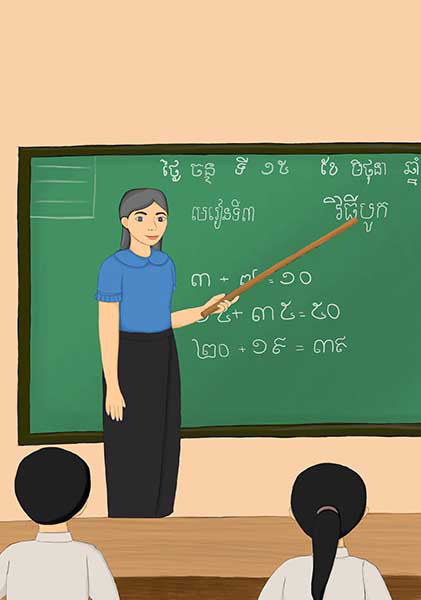 ថ្ងៃ ចន្ទ ទី ១៥ ខែ មិថុនា ឆ្នាំ
មេរៀនទី៣ វិធីបូក
៣ + ៧ = ១០
១៥+ ៣៥ = ៥០
២០ + ១៩ = ៣៩